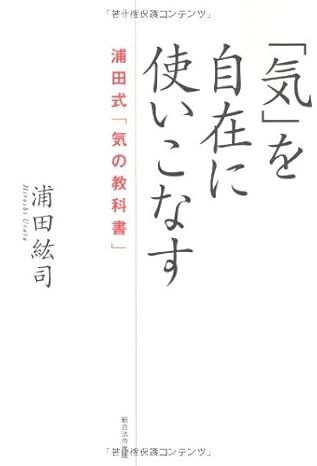 「著作権保護コンテンツ」
「気」を
自在に
使いこなす
浦田式「気の教科書」
浦田紘司
Hiroshi Urata
総合法令出版
「著作権保護コンテンツ」